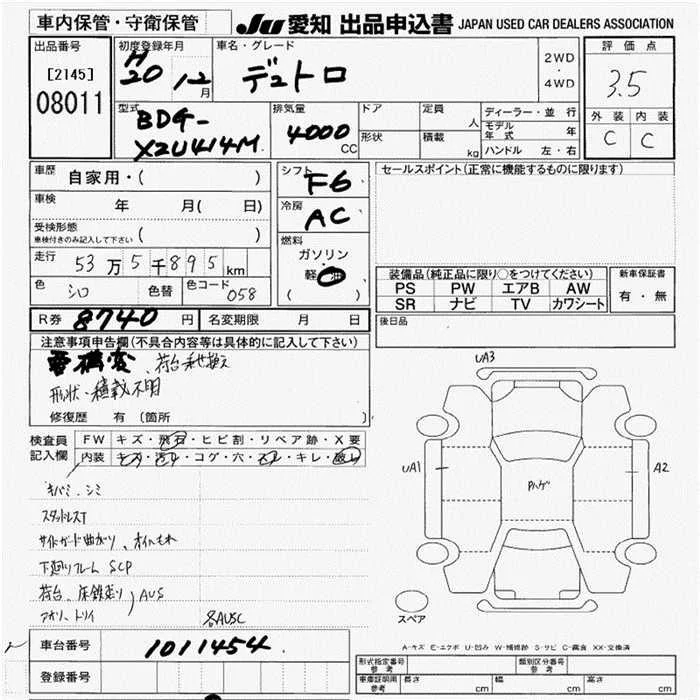 車内保管・守衛保管
JU 愛知 出品申込書 JAPAN USED CAR DEALERS ASSOCIATION
出品番号
[2145]
08011
初度登録年月
H20 12月
車名・グレード
デュトロ
2WD
・
4WD
評価点
3.5
外装 内装
C C
型式
BDG-
XZU414M
排気量
4000 CC
ドア
形状
定員 人
積載 kg
ディーラー・並行
モデル年式 年
ハンドル 左・右
車歴
自家用・( )
車検
年 月( 日)
受検形態
車検付きのみ記入して下さい ( )
走行
53万5千895km
色 シロ 色替 色コード 058
シフト
F6
冷房
AC
燃料
ガソリン
軽油
( )
セールスポイント(正常に機能するものに限ります)
装備品(純正品に限り○をつけてください)
PS PW エアB AW
SR ナビ TV カワシート
新車保証書
有・無
R券 8740円 名変期限 月 日
後日品
注意事項申告欄(不具合内容等は具体的に記入して下さい)
要構変、荷台乗せ換え
形状・積載不明
修復歴 有 (箇所 )
検査員
記入欄
FW キズ・飛石・ヒビ割・リペア跡・X要
内装 キズ・汚れ・コゲ・穴・スレ・キレ・破レ
キバミ・シミ
スタッドレスT
サイドガード曲がり、オイルもれ
下廻りフレーム SCP
荷台、床鉄走り
アオリ、トリイ
AUS
各AUSC
UA3
UA1
A2
Pハゲ
スペア
A-キズ E-エクボ U-凹み W-補修跡 S-サビ C-腐食 XX-交換済
車台番号 1011454
登録番号
形式指定番号
参考
類別区分番号
参考
車庫証明用
参考
長さ cm 幅 cm 高さ cm